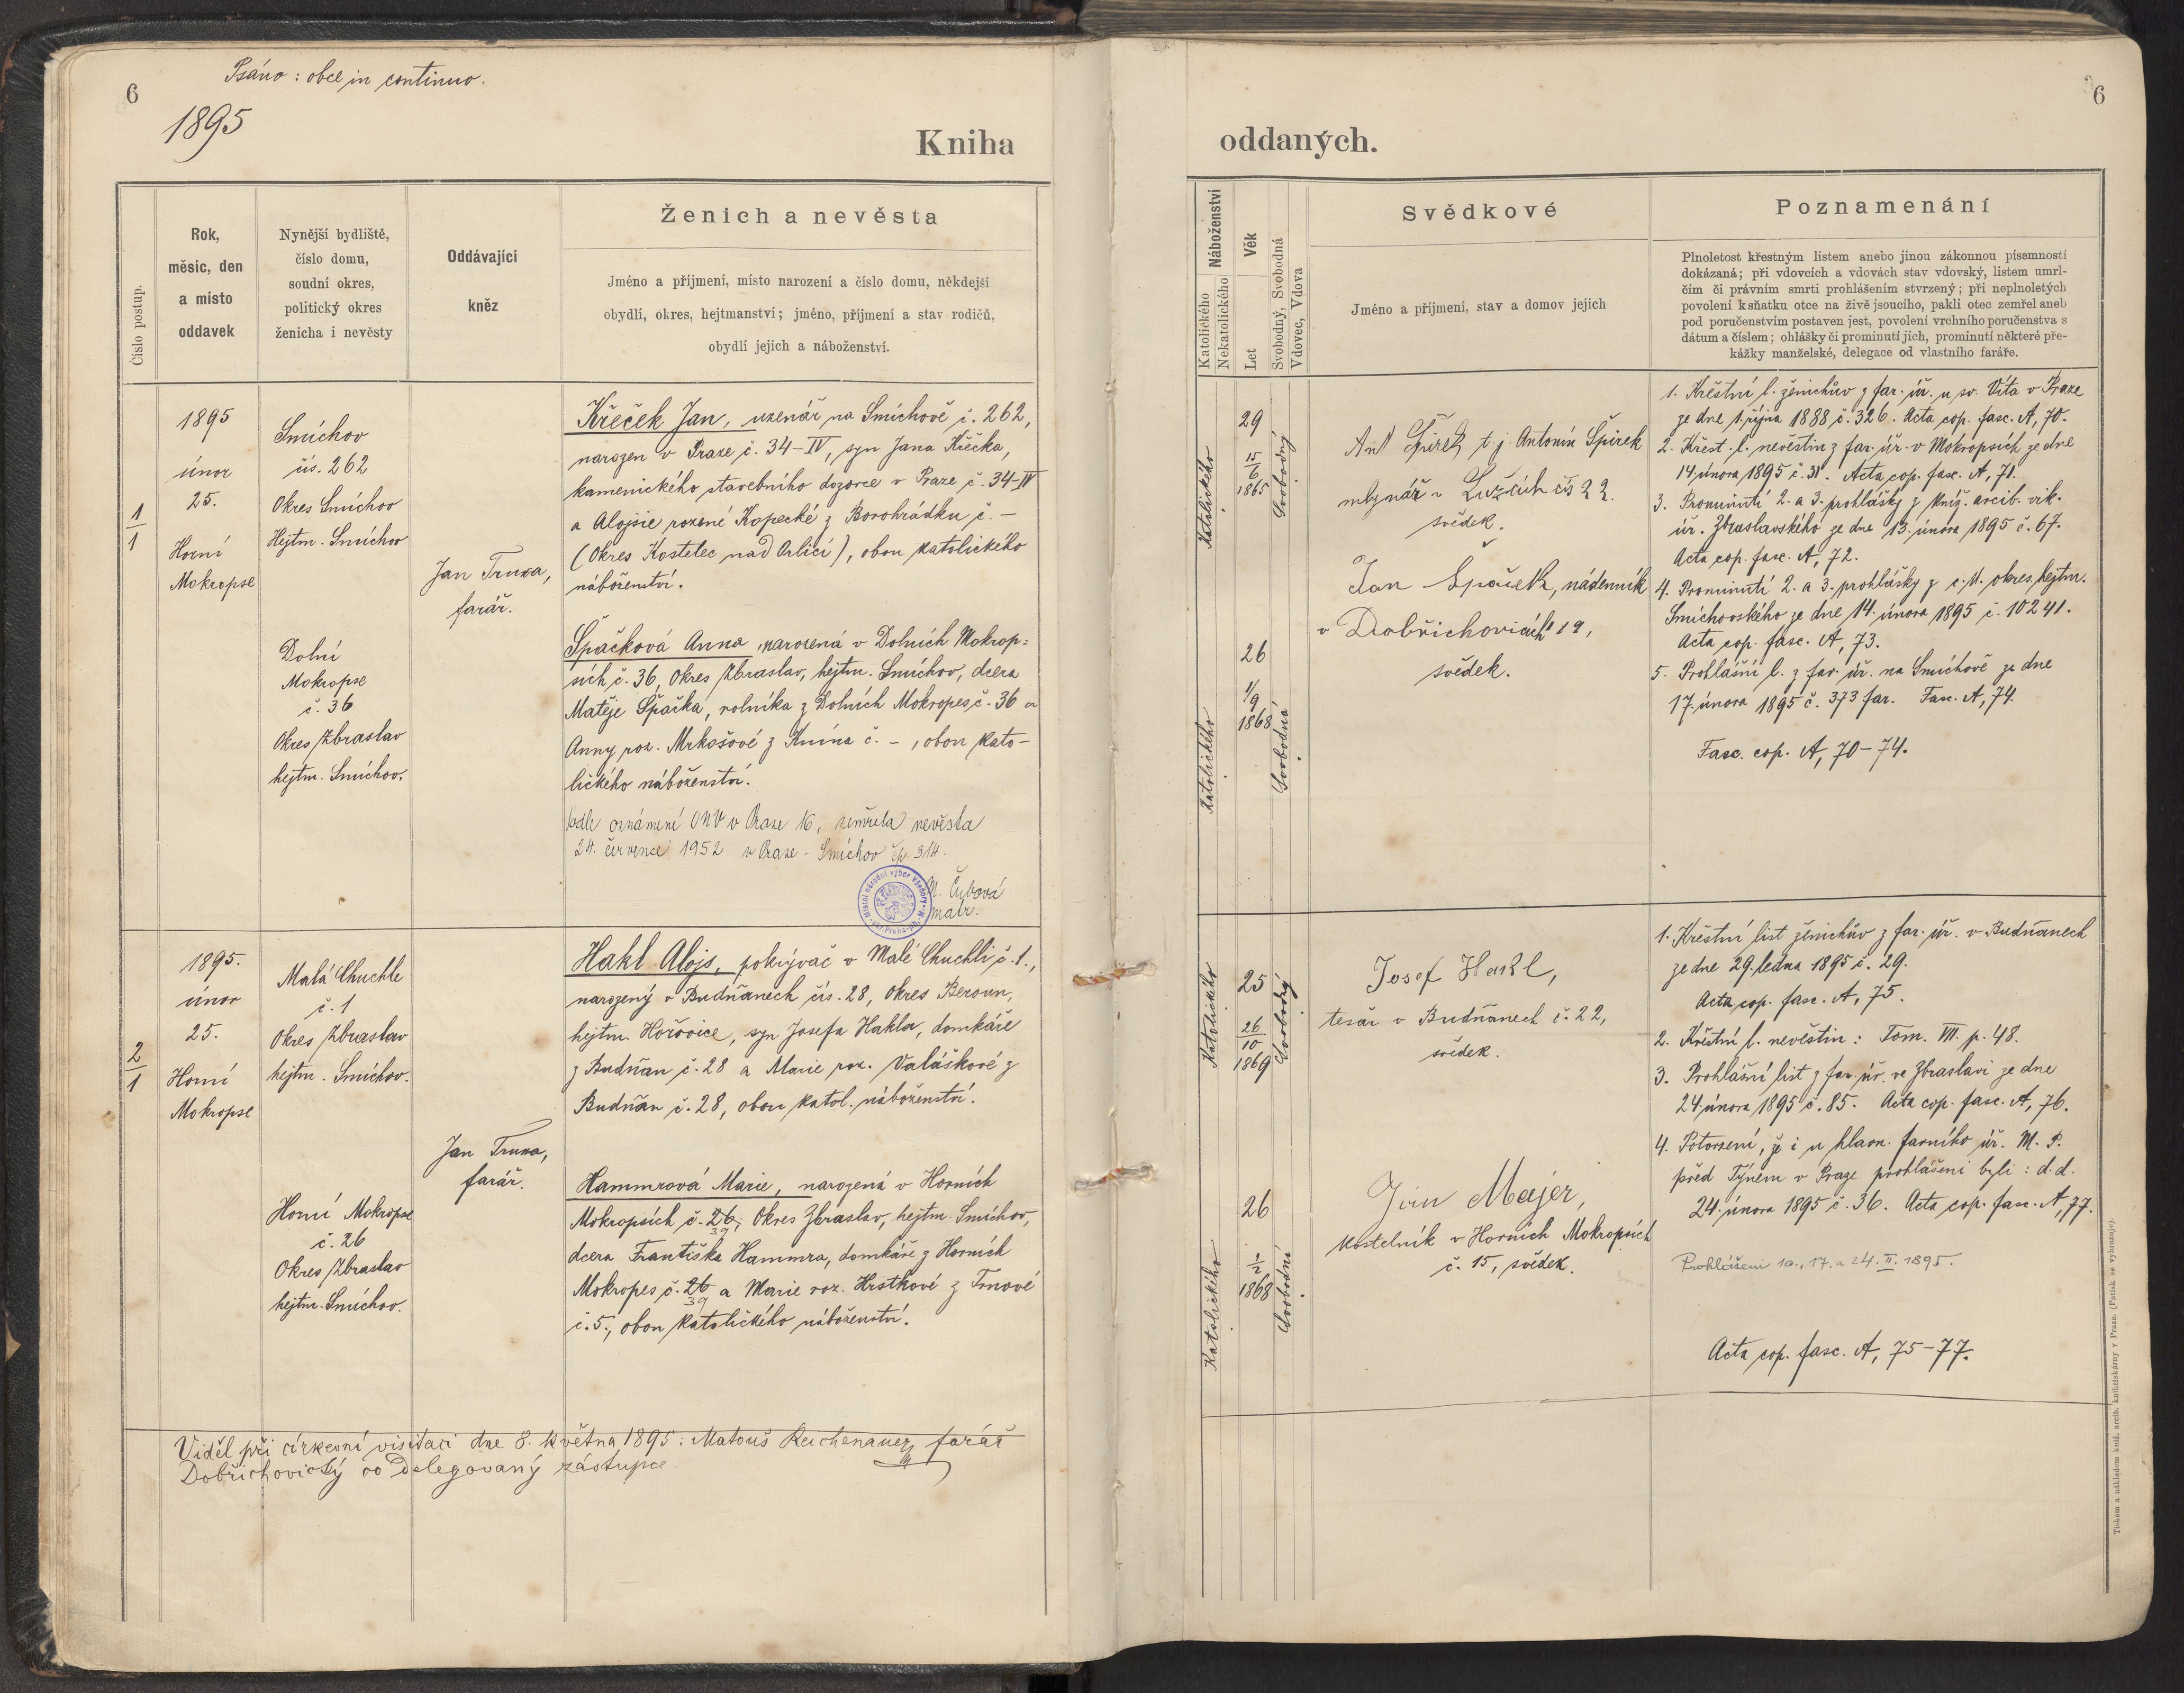 Psáno: obce in continuo.
6
1895
Kniha
Číslo postup.
Rok,
měsíc, den
a místo
oddavek
Nynější bydliště,
číslo domu,
soudní okres,
politický okres
ženicha i nevěsty
Oddávající
kněz
Ženich a nevěsta
Jméno a příjmení, místo narození a číslo domu, někdejší
obydlí, okres, hejtmanství; jméno, příjmení a stav rodičů,
obydlí jejich a náboženství.
1
1
1895
únor
25.
Horní
Mokropse
Smíchov
čís. 262
Okres Smíchov
Hejtm. Smíchov
Dolní
Mokropse
č. 36
Okres Zbraslav
hejtm. Smíchov.
Jan Truxa,
farář.
Křeček Jan, uzenář na Smíchově č. 262,
narozen v Praze č. 34-IV, syn Jana Křečka,
kamenického stavebního dozorce v Praze č. 34-IV
a Aloisie rozené Kopecké z Borohrádku č. —
(Okres Kostelec nad Orlicí), obou katolického
náboženství.
Špačková Anna, narozená v Dolních Mokrop=
sích č. 36, Okres Zbraslav, hejtm. Smíchov, dcera
Matěje Špačka, rolníka z Dolních Mokropes č. 36 a
Anny roz. Mrkošové z Knína č. -, obou kato-
lického náboženství.
Podle oznámení ONV v Praze 16, zemřela nevěsta
24. července 1952 v Praze - Smíchov čp. 314.
Místní národní výbor Všenory
M. Čubová
matr.
2
1
1895.
únor
25.
Horní
Mokropse
Malá Chuchle
č. 1
Okres Zbraslav
hejtm. Smíchov.
Horní Mokropse
č. 26
Okres Zbraslav
hejtm. Smíchov.
Jan Truxa,
farář.
Hakl Alojs, pokrývač v Malé Chuchli č. 1.,
narozený v Budňanech čís. 28, okres Beroun,
hejtm. Hořovice, syn Josefa Hakla, domkáře
z Budňan č. 28 a Marie roz. Valáškové z
Budňan č. 28, obou katol. náboženství.
Hammrová Marie, narozená v Horních
Mokropsích č. 26, Okres Zbraslav, hejtm. Smíchov,
39
dcera Františka Hammra, domkáře z Horních
Mokropes č. 26 a Marie roz. Hrstkové z Trnové
39
č. 5., obou katolického náboženství.
Viděl při církevní visitaci dne 8. května 1895: Matouš Reichenauer, farář
Dobřichovický co delegovaný zástupce.
6
oddaných.
Náboženství
Katolického
Nekatolického
Věk
Let
Svobodný, Svobodná
Vdovec, Vdova
Svědkové
Jméno a příjmení, stav a domov jejich
Poznamenání
Plnoletost křestným listem anebo jinou zákonnou písemností
dokázaná; při vdovcích a vdovách stav vdovský, listem umrl-
čím či právním smrti prohlášením stvrzený; při neplnoletých
povolení k sňatku otce na živě jsoucího, pakli otec zemřel aneb
pod poručenstvím postaven jest, povolení vrchního poručenstva s
dátum a číslem; ohlášky či prominutí jich, prominutí některé pře-
kážky manželské, delegace od vlastního faráře.
Katolického
29
15
6
1865
Svobodný
Ant Špirek t. j. Antonín Špirek
mlynář v čís 22.
svědek.
Jan Špaček, nádenník
v Dobřichovicích 19,
svědek.
Katolického
26
1/9
1868
Svobodná
1. Křestní l. ženichův z far. úř. u sv. Víta v Praze
ze dne 1. října 1888 č. 326. Acta cop. fasc. A, 70.
2. Křest. l. nevěstin z far. úř. v Mokropsích ze dne
14 února 1895 č. 31. Acta cop. fasc. A, 71.
3. Prominutí 2. a 3. prohlášky z kníž. arcib. vik.
úř. Zbraslavského ze dne 13. února 1895 č. 67.
Acta cop. fasc. A, 72.
4. Prominutí 2. a 3. prohlášky z c. k. okres. hejtm.
Smíchovského ze dne 14. února 1895 č. 10241.
Acta cop. fasc. A, 73.
5. Prohlášní l. z far. úř. na Smíchově ze dne
17. února 1895 č. 373 far. Fasc. A, 74.
Fasc. cop. A, 70-74.
Katolického
25
26
10
1869
Svobodný
Josef Hakl,
tesař v Budňanech č. 22,
svědek.
Katolického
26
1
2
1868
Svobodná
Jan Majer,
kostelník v Horních Mokropsích
č. 15, svědek.
1. Křestní list ženichův z far. úř. v Budňanech
ze dne 29. ledna 1895 č. 29.
Acta cop. fasc. A, 75.
2. Křestní l. nevěstin: Tom. VII. p. 48.
3. Prohlášní list z far. úř. ve Zbraslavi ze dne
24. února 1895 č. 85. Acta cop. fasc. A, 76.
4. Potvrzení, že i u hlavn. farního úř. M. P.
před Týnem v Praze prohlášeni byli: d. d.
24. února 1895 č. 36. Acta cop. fasc. A, 77.
Prohlášeni 10., 17. a 24. II. 1895.
Acta cop. fasc. A, 75-77.
Tiskem a nákladem kníž. arcib. knihtiskárny v Praze. (Patisk se vyhrazuje).